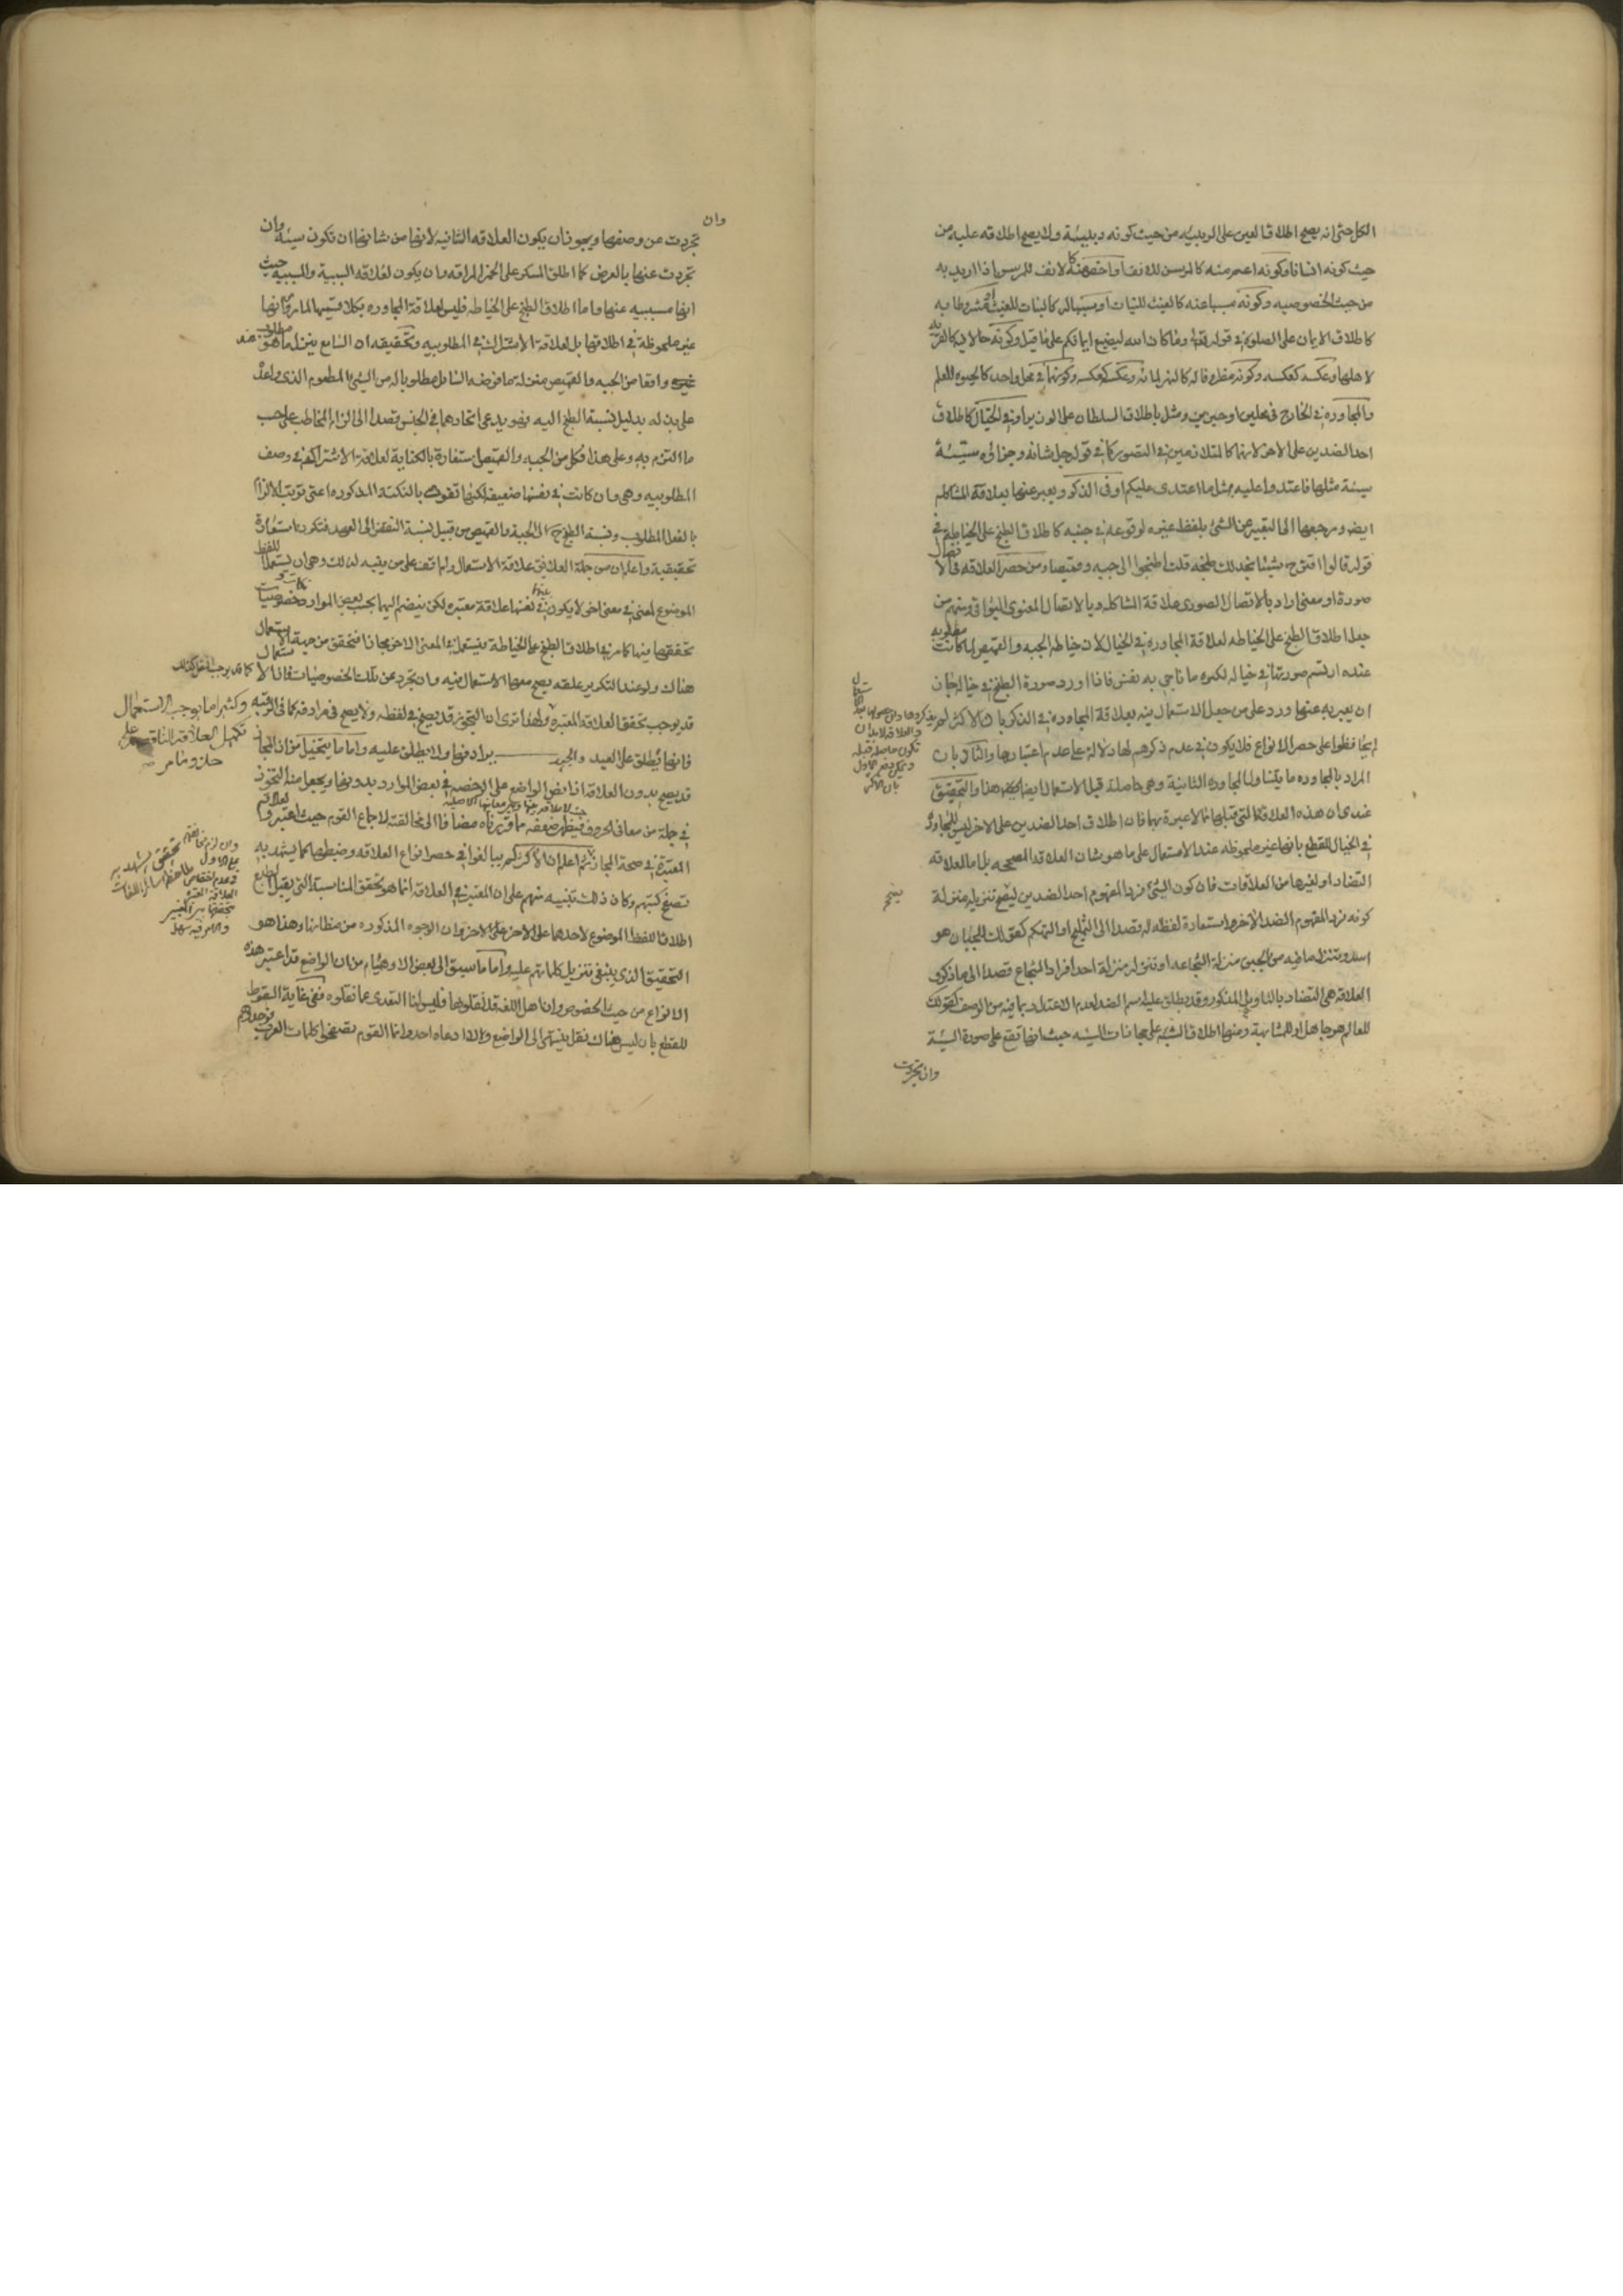 الكل حتى انه يصح اطلاق العين على الربيئه من حيث كونه ربيئة ولا يصح اطلاقه عليه من
حيث كونه انسانا وكونه اعم منه كالمرسن للانف او اخص منه كالانف للمرسن اذا اريد به
من حيث الخصوصيه وكونه مسببا عنه كالغيث للنبات او سببا له كالنبات للغيث او مشروطا به
كاطلاق الايمان على الصلوة في قوله تعالى وما كان الله ليضيع ايمانكم على ما قيل وكونه حالا فيه كالقرية
لاهلها وعكسه كعكسه وكونه مظروفا له كالنهر لمائه وعكسه كعكسه وكونهما في محل واحد كالحيوة للعلم
والمجاوره في الخارج في محلين او حيزين ومثل باطلاق السلطان على الوزير او في الخيال كاطلاق
احد الضدين على الاخر لانهما كالمتلازمين في التصور كما في قوله جل شانه وجزاؤه سيئة
سيئة مثلها فاعتدوا عليه بمثل ما اعتدى عليكم او في الذكر ويعبر عنها بعلاقة المشاكله
ايضا ومرجعها الى التعبير عن الشئ بلفظ غيره لوقوعه في جنبه كاطلاق الطبخ على الخياطة في
قوله قالوا اقترح شيئا نجد لك طبخه قلت اطبخوا لي جبه وقميصا ومن حصر العلاقه في الاتصال
صورة او معنى اراد بالاتصال الصوري علاقة المشاكله وبالاتصال المعنوي البواقي ومنهم من
جعل اطلاق الطبخ على الخياطه لعلاقة المجاوره في الخيال لان خياطه الجبه والقميص لما كانت مطلوبه
عنده ارتسم صورتها في خياله لكثرة ما ناجى به نفسه فاذا اورد صورة الطبخ في خياله جاز
ان يعبر به عنها ورد على من جعل الاستعمال فيه بعلاقة المجاوره في الذكر بان الاكثر لم يذكروها
المراد بالمجاوره ما يتناول المجاورة الثانية وهي حاصلة قبل الاستعمال ايضا هذا والتحقيق
عندي ان هذه العلاقة كالتي قبلها مما لا عبرة بهما فان اطلاق احد الضدين على الاخر ليس للتجاور
في الخيال للقطع بانها غير ملحوظه عند الاستعمال على ما هو شان العلاقة المصححه بل اما لعلاقه
التضاد او لغيرها من العلاقات فان كون الشئ فردا لمفهوم احد الضدين ليصح تنزيله منزلة
كونه فردا لمفهوم الضد الآخر واستعارة لفظه له قصدا الى التمليح او التهكم كقولك للجبان هو
اسد وتنزل ما فيه من الجبن منزلة الشجاعه او تنزله منزلة احد افراد الشجاع قصدا الى ما ذكر و
العلاقه هي التضاد بالتاويل المذكور وقد يطلق عليه اسم الضد لعدم الاعتداد بما فيه من الوصف كقولك
للعالم هو جاهل او للمشابهة ومنها اطلاق السيئه على مجازات السيئه حيث انها تقع على صورة السيئة
وان تجردت
وان
تجردت عن وصفها ويجوز ان يكون العلاقه الثانيه لانها من شانها ان تكون سيئه وان
تجردت عنها بالعرض كما اطلق المسكر على الخمر المراقه وان يكون لعلاقه السببية والمسببيه حيث
انها مسببيه عنها واما اطلاق الطبخ على الخياطه فليس لعلاقة المجاوره بكلا قسميها لما مر من انها
غير ملحوظة في اطلاقها بل لعلاقة الاشتراك في المطلوبيه وتحقيقه ان السامع ينزل ما هو مطلوب عنده
واقعا من الجبه والقميص منزلة ما فرضه السائل مطلوبا له من الشئ المطعوم الذي واعد
على بذله بدليل نسبة الطبخ اليه فهو يدعي اتحادهما في الجنس قصدا الى الزام المخاطب على حسب
ما التزم به وعلى هذا فكل من الجبه والقميص استعارة بالكناية لعلاقة الاشتراكهم في وصف
المطلوبيه وهي وان كانت في نفسها ضعيفه لكنها تقوت بالنكته المذكوره اعني ترتب الالزام
بالفعل المطلوب ونسبة الطبخ ح الى الجبة والقميص من قبيل نسبة النقض الى العهد فتكون استعارة
تحقيقية واعلم ان من جملة العلائق علاقة الاستعمال ولم اقف على من يتنبه لذلك وهي ان يستعمل اللفظ
الموضوع لمعنى في معنى اخر لا يكون بينهما في نفسها علاقة معتبره لكن ينضم اليها بحسب بعض الموارد خصوصيات
تحققها فيها كما مر في اطلاق الطبخ على الخياطة فيستعمل في المعنى الاخر مجازا فتحقق من جهة الاستعمال
هناك ولو عند التكرير علقه يصح معها الاستعمال فيه وان تجرد عن تلك الخصوصيات فان الاستعمال
قد يوجب تحقق العلاقة المعتبره ولهذا ترى ان التجوز قد يصح في لفظه ولا يصح في مرادفه كما في الرقبه
فانها يطلق على العبد والجيد برادفها ولا يطلق عليه واما ما يتخيل من ان المجاز
قد يصح بدون العلاقة اذا نص الواضع على الرخصه في بعض الموارد بدونها ويجعل منه التجوز
في جملة من معاني الحروف فيظهر ضعفه مما قررناه مضافا الى مخالفته لاجماع القوم حيث اعتبروا العلاقه
المعتبرة في صحة المجاز ثم اعلم ان الاكثر لم يبالغوا في حصر انواع العلاقه وضبطها كما يشهد به
تصفح كتبهم وكان ذلك تنبيه منهم على ان المعتبر في العلاقة انما هو تحقق المناسبة التي يقبل الطبع
اطلاق اللفظ الموضوع لاحدهما على الاخر وان الوجوه المذكوره من مظانها وهذا هو
التحقيق الذي ينبغي تنزيل كلماتهم عليه واما ما سبق الى بعض الاوهام من ان الواضع قد اعتبر هذه
الانواع من حيث الخصوص وان اهل اللغه قد نقلوها فليس لنا التعدي عما نقلوه ففي غاية السقوط
للقطع بان ليس هناك نقل ينتهى الى الواضع ولا ادعاه احد وانما القوم تصفحوا كلمات العرب فوجدوهم
وكثيرا ما يوجب الاستعمال
تكميل العلاقة الناقصة على
حذو ما مر